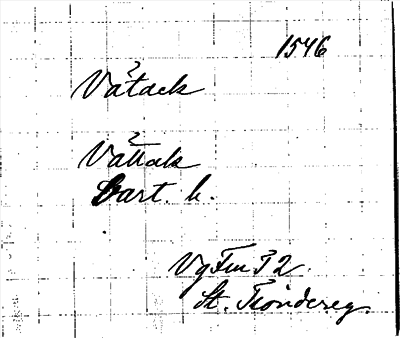 1546
Våtack
Våttak
Bart. h.
Vg Fm 3 2.
St. Tiondereg.